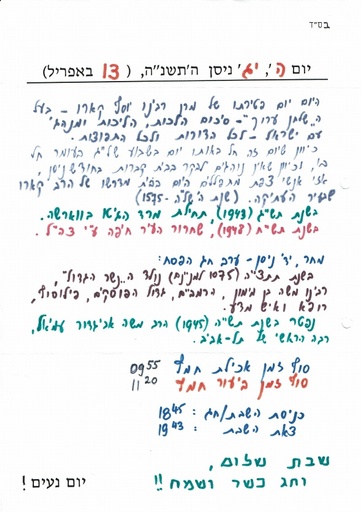 בס״ד
יום ה', י״ג ניסן ה'תשנ״ה, ( 13 באפריל)
היום יום פטירתו של מרן רבינו יוסף קארו – בעל
ה״שלחן ערוך״ – סיכום הלכות, הליכות ומנהגי
עם ישראל – לכל הדורות ולכל התפוצות.
כיוון שיום זה חל באותו יום בשבוע של ל״ג העומר חל
בו, וכיוון שאין נוהגים לבקר בבית קברות בחודש ניסן,
אזי אנשי צפת מתפללים היום בבית מדרשו של הרב קארו
שבעיר העתיקה. (שנת ה'של״ה – 1575)
בשנת תש״ג (1943), תחילת מרד הגיטו בווארשה.
בשנת תש״ח (1948), שחרור העיר חיפה ע״י צה״ל.
מחר, י״ד ניסן – ערב חג הפסח:
בשנת תתצ״ה (1075 למנינם) נולד ה״נשר הגדול״
רבינו משה בן מימון, הרמב״ם, גדול הפוסקים, פילוסוף,
רופא ואיש מדע.
נפטר בשנת תש״ה (1945) הרב משה אביגדור עמיאל,
רבה הראשי של תל-אביב.
סוף זמן אכילת חמץ 09⁵⁵
סוף זמן ביעור חמץ 11²⁰
כניסת השבת/חג : 18⁴⁵
צאת השבת : 19⁴³
שבת שלום,
וחג כשר ושמח!!
יום נעים !